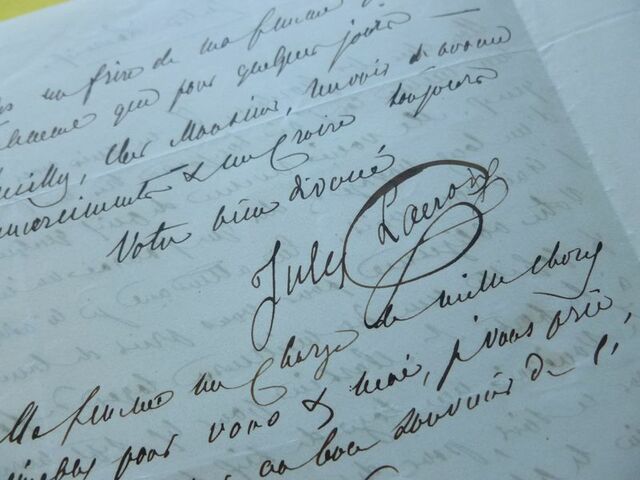 un frère de ma femme
que pour quelques jours —
Veuillez, cher Monsieur, recevoir d'avance
remerciements & me croire toujours
Votre bien dévoué
Jules Lacroix
Ma femme me charge de mille choses
aimables pour vous & moi, je vous prie,
au bon souvenir de